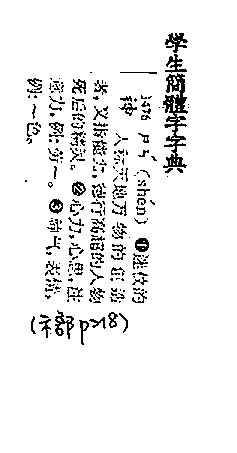 學生簡體字字典
1476 ㄕㄣˊ (shén) ❶迷信的
神 人称天地万物的创造
者,又指能力、德行高超的人物
死后的精灵。❷心力,心思,注
意力,例:劳~。❸神气,表情,
例:~色。
(示部p218)